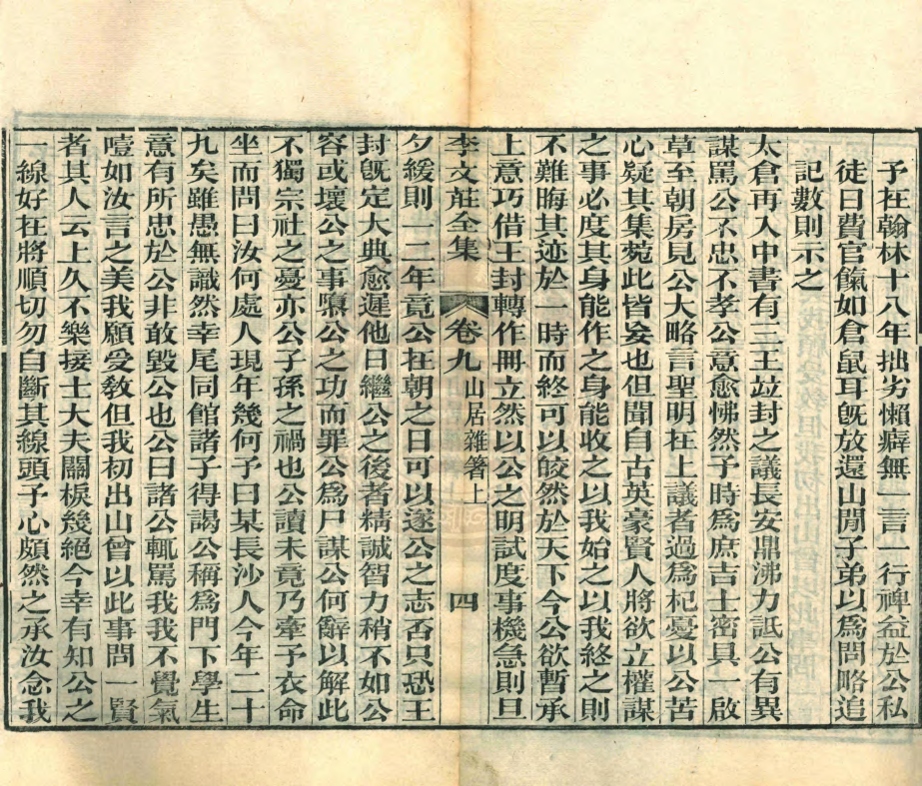 予在翰林十八年拙劣懶癖無一言一行裨益於公私
徒曰費官餼如倉鼠耳旣放還山閒子弟以爲問略追
記數則示之
太倉再入中書有三王竝封之議長安鼎沸力詆公有異
謀罵公不忠不孝公意愈怫然予時爲庶吉士密具一啟
草至朝房見公大略言聖明在上議者過爲杞憂以公苦
心疑其集菀此皆妄也但聞自古英豪賢人將欲立權謀
之事必度其身能作之身能收之以我始之以我終之則
不難晦其迹於一時而終可以皎然於天下今公欲暫承
上意巧借王封轉作冊立然以公之明試度事機急則旦
李文莊全集 卷九 山居雜著上 四
夕緩則一二年竟公在朝之日可以遂公之志否只恐王
封旣定大典愈遲他日繼公之後者精誠智力稍不如公
容或壞公之事隳公之功而罪公爲尸謀公何辭以解此
不獨宗社之憂亦公子孫之禍也公讀未竟乃牽予衣命
坐而問曰汝何處人現年幾何予曰某長沙人今年二十
九矣雖愚無識然幸尾同館諸子得謁公稱爲門下學生
意有所忠於公非敢毀公也公曰諸公輒罵我我不覺氣
噎如汝言之美我願受敎但我初出山曾以此事問一賢
者其人云上久不樂接士大夫關棙幾絕今幸有知公之
一線好在將順切勿自斷其線頭予心頗然之承汝念我